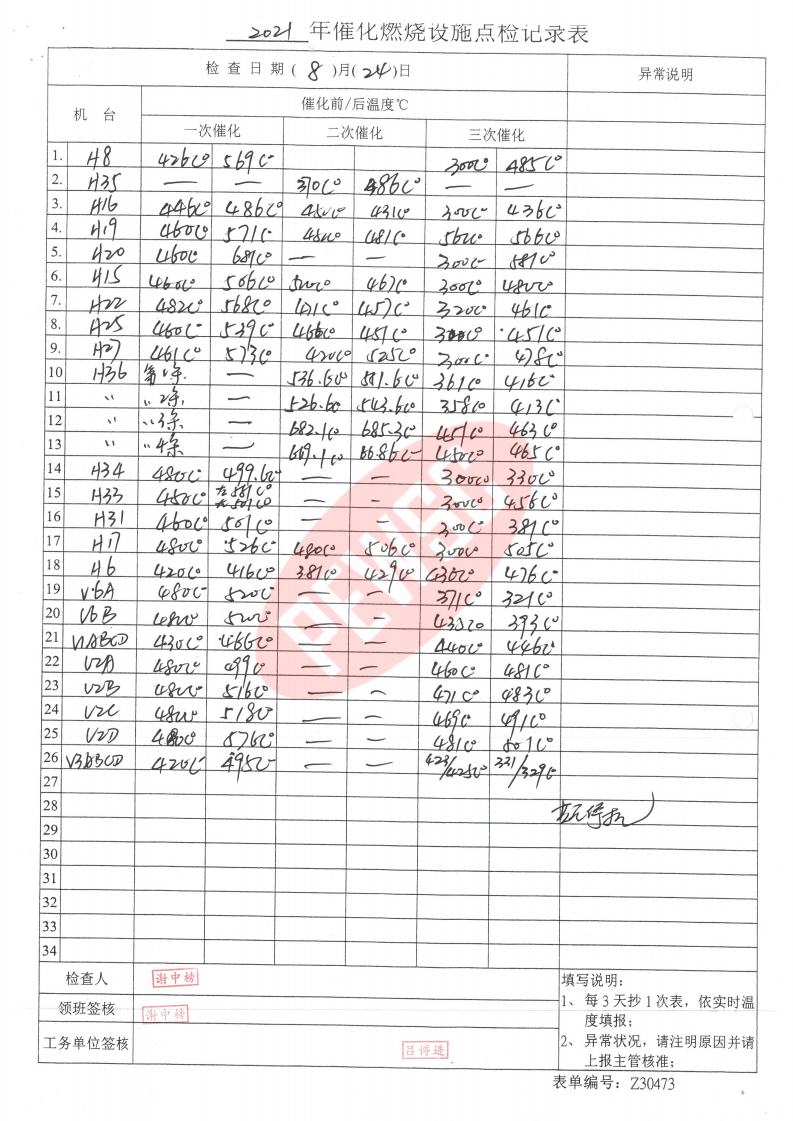 2021 年催化燃烧设施点检记录表
检查日期(8)月(24)日 异常说明
机台 催化前/后温度℃
一次催化 二次催化 三次催化
1. H8 426C° 569C° 300C° 485C°
2. H35 — — 310C° 486C° — —
3. H16 446C° 486C° 480C° 431C° 300C° 436C°
4. H19 460C° 571C° 480C° 481C° 560C° 566C°
5. H20 460C° 681C° — — 300C° 581C°
6. H15 460C° 506C° 520C° 467C° 300C° 480C°
7. H22 482C° 568C° 471C° 457C° 320C° 461C°
8. H25 460C° 539C° 466C° 451C° 300C° 451C°
9. H27 461C° 573C° 420C° 525C° 300C° 478C°
10 H36 第1条 — 536.6C° 581.6C° 361C° 416C°
11 〃 〃2条 — 526.6C° 543.6C° 358C° 413C°
12 〃 〃3条 — 682.1C° 685.3C° 451C° 463C°
13 〃 〃4条 — 669.1C° 668.6C° 450C° 465C°
14 H34 480C° 499.6C° — — 300C° 330C°
15 H33 450C° 左581C° 右501C° — — 300C° 456C°
16 H31 460C° 501C° — — 300C° 381C°
17 H17 480C° 526C° 480C° 506C° 300C° 505C°
18 H6 420C° 416C° 381C° 429C° 430C° 476C°
19 V6A 480C° 520C° — — 371C° 321C°
20 V6B 480C° 520C° — — 433C° 393C°
21 V1ABCD 430C° 466C° — — 440C° 446C°
22 V2A 480C° 499C° — — 460C° 481C°
23 V2B 480C° 516C° — — 471C° 483C°
24 V2C 480C° 518C° — — 469C° 491C°
25 V2D 480C° 576C° — — 481C° 501C°
26 V3ABCD 420C° 495C° — — 423/425C° 331/329C°
27
28
29
30
31
32
33
34
检查人 谢中榜
领班签核 谢中榜
工务单位签核 吕博进
填写说明:
1、每3天抄1次表，依实时温
度填报;
2、异常状况，请注明原因并请
上报主管核准;
表单编号：Z30473
PEWSC